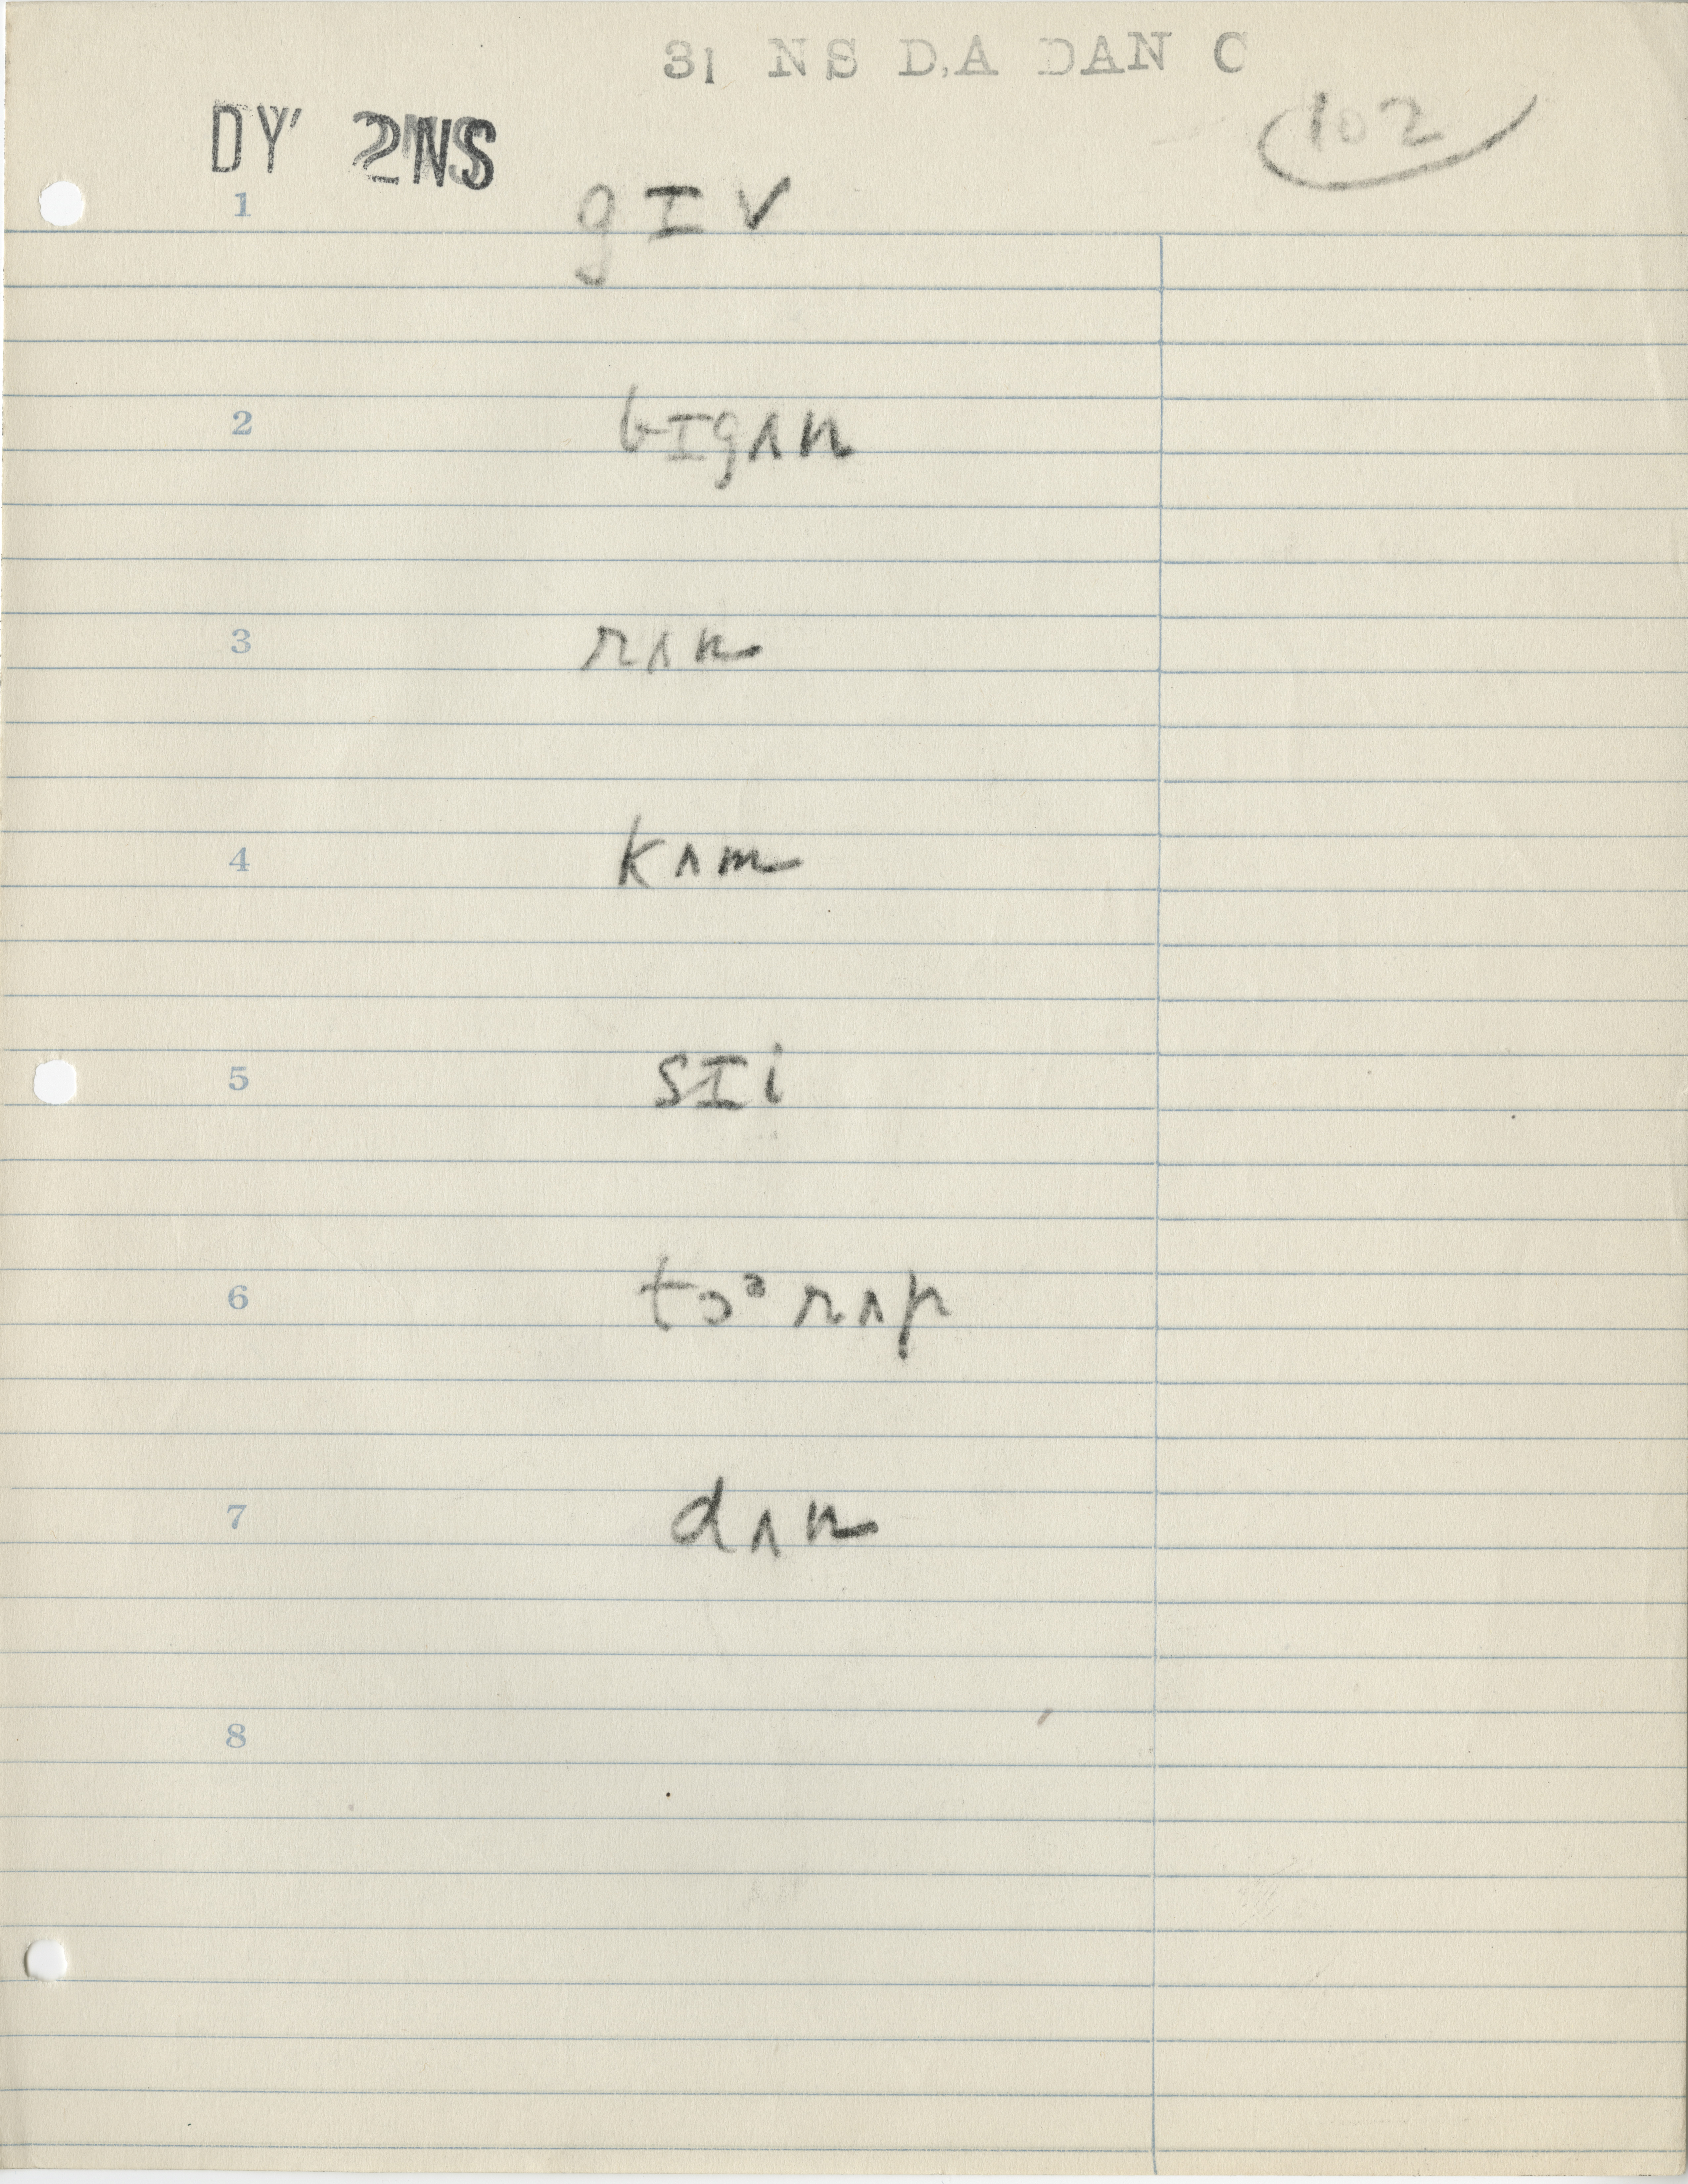 31 NS D.A DAN C
DY' 2NS
102
1 gɪv
2 bɪgʌn
3 rʌn
4 kʌm
5 sɪi
6 tɔᵊ rʌp
7 dʌn
8